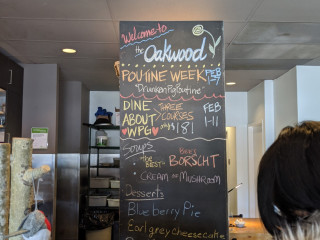 Welcome to
the Oakwood
POUTINE WEEK FEB 1-7
"Drunken Pig Poutine"
DINE ABOUT WPG
THREE COURSES
FEB 1-11
Soups:
• "the BEST" Beet BORSCHT
• CREAM of MUSHROOM
Desserts
Blueberry Pie
Earl grey cheesecake